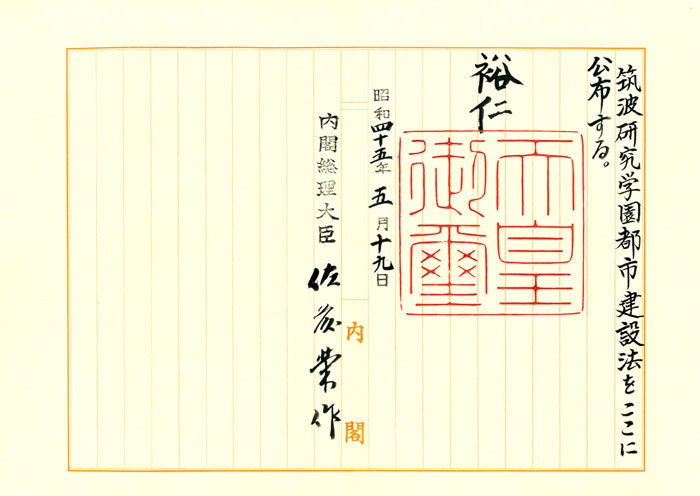 筑波研究学園都市建設法をここに
公布する。
裕仁
天皇
御璽
昭和四十五年五月十九日
内閣総理大臣 佐藤榮作
内閣